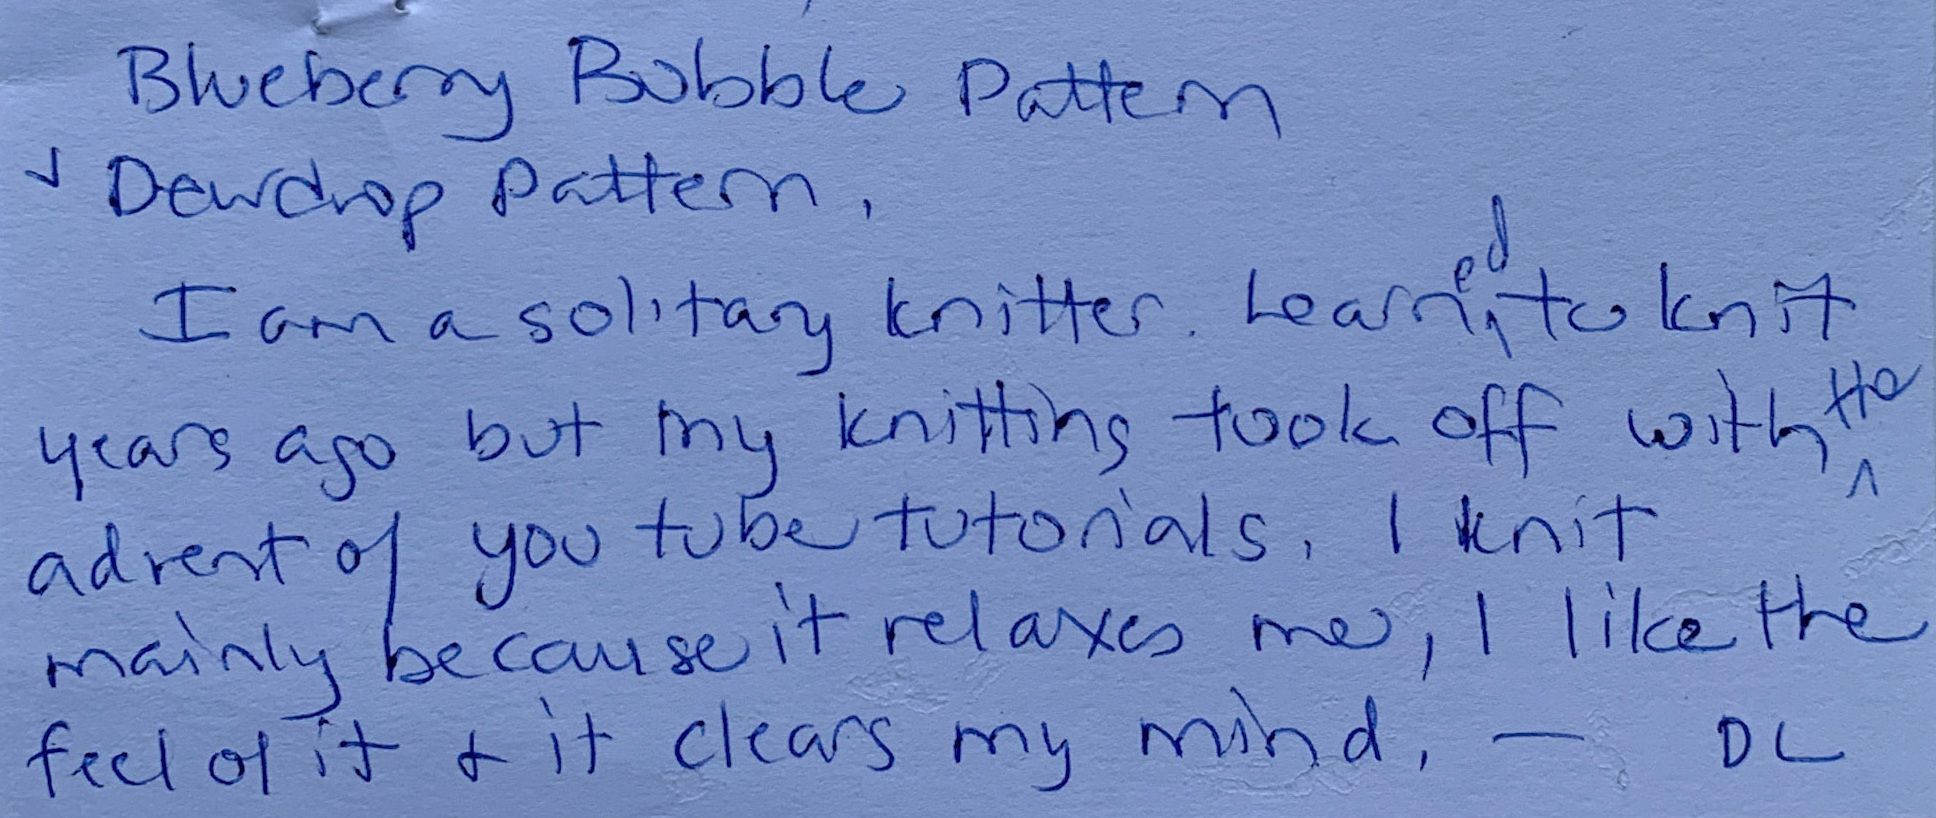 Blueberry Bobble Pattern
✓ Dewdrop Pattern.
I am a solitary knitter. Learned to knit
years ago but my knitting took off with the
advent of you tube tutorials. I knit
mainly because it relaxes me, I like the
feel of it & it clears my mind. — DL